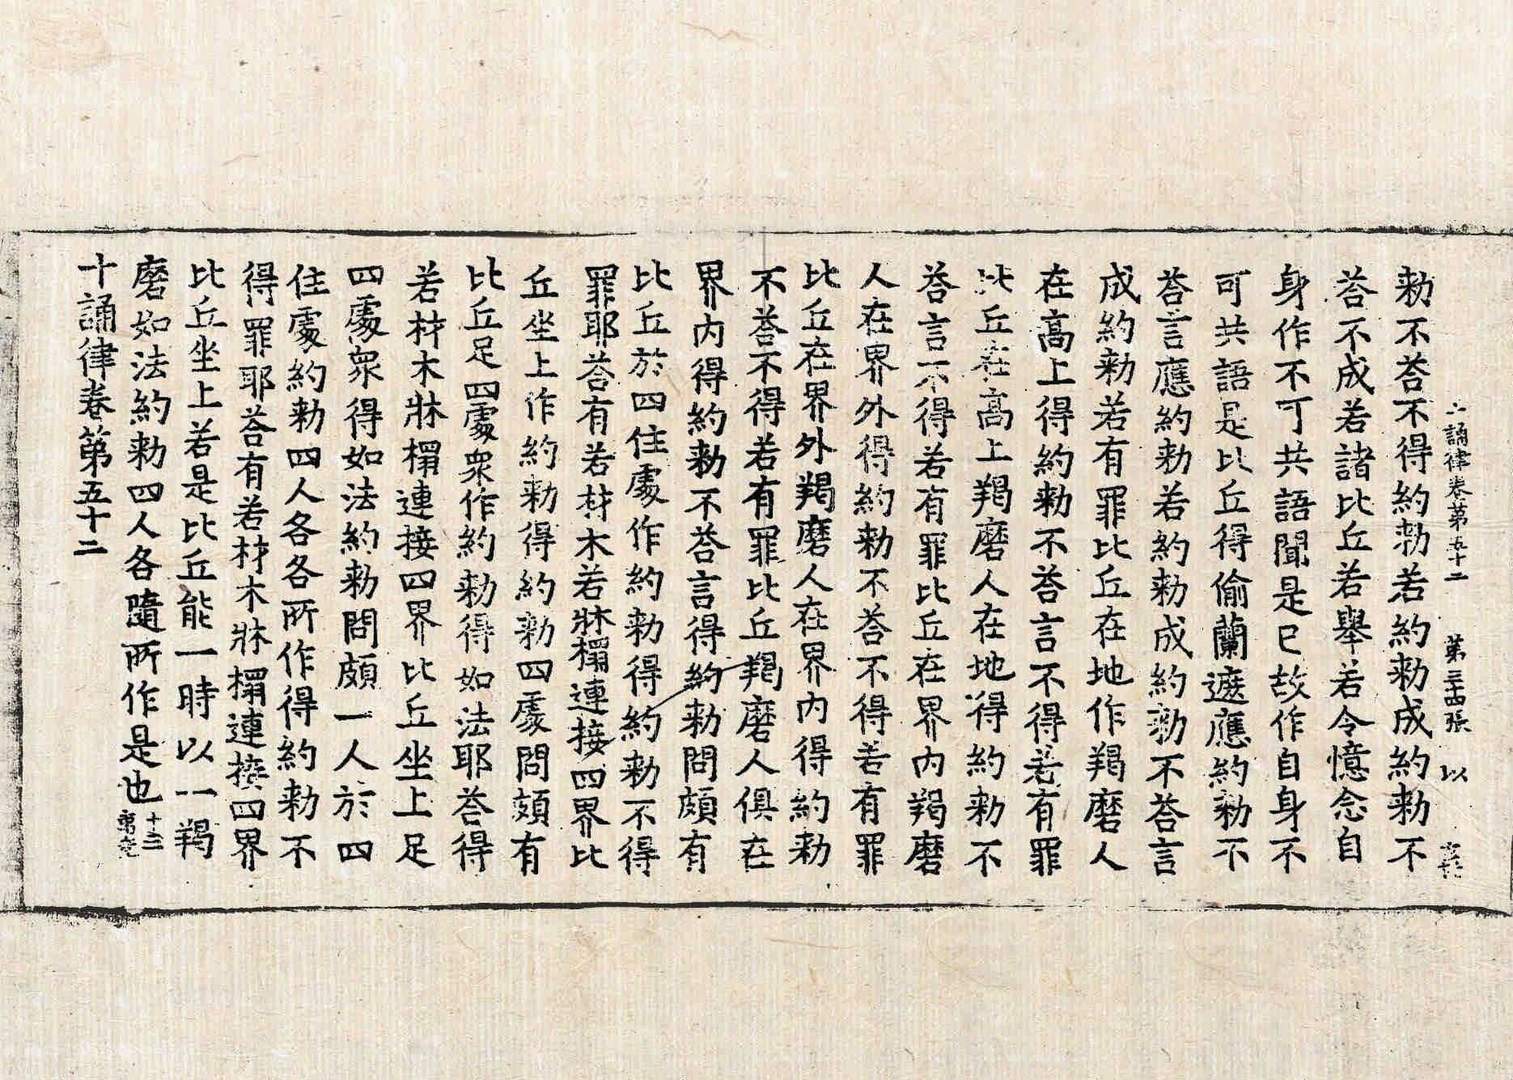 十誦律卷第五十二 第三四張 以
勑不荅不得約勑若約勑成約勑不
荅不成若諸比丘若舉若令憶念自
身作不可共語聞是已故作自身不
可共語是比丘得偷蘭遮應約勑不
荅言應約勑若約勑成約勑不荅言
成約勑若有罪比丘在地作羯磨人
在高上得約勑不荅言不得若有罪
比丘在高上羯磨人在地得約勑不
荅言不得若有罪比丘在界內羯磨
人在界外得約勑不荅不得若有罪
比丘在界外羯磨人在界內得約勑
不荅不得若有罪比丘羯磨人俱在
界內得約勑不荅言得約勑問頗有
比丘於四住處作約勑得約勑不得
罪耶荅有若材木若牀榻連接四界比
丘坐上作約勑得約勑四處問頗有
比丘足四處衆作約勑得如法耶荅得
若材木牀榻連接四界比丘坐上足
四處衆得如法約勑問頗一人於四
住處約勑四人各各所作得約勑不
得罪耶荅有若材木牀榻連接四界
比丘坐上若是比丘能一時以一羯
磨如法約勑四人各隨所作是也
十誦律卷第五十二